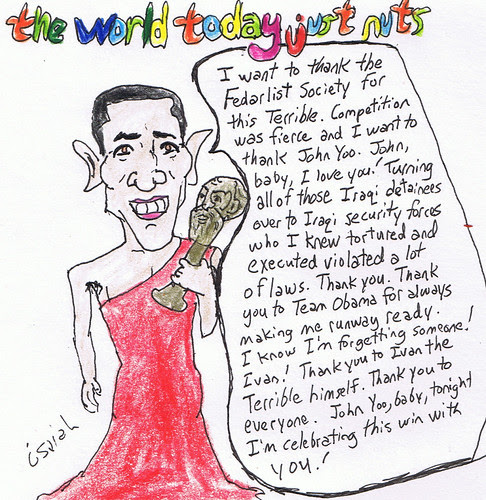 the world today just nuts
I want to thank the
Fedarlist Society for
this Terrible. Competition
was fierce and I want to
thank John Yoo. John,
baby, I love you! Turning
all of those Iraqi detainees
over to Iraqi security forces
who I knew tortured and
executed violated a lot
of laws. Thank you. Thank
you to Team Obama for always
making me runway ready.
I know I'm forgetting someone!
Ivan! Thank you to Ivan the
Terrible himself. Thank you to
everyone. John Yoo, baby, tonight
I'm celebrating this win with
you!
isaiah